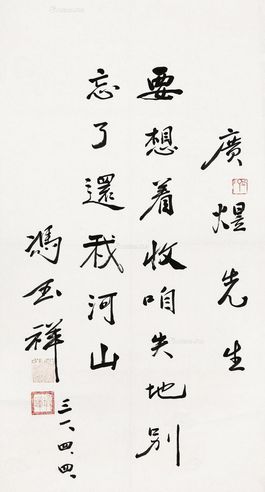 廣煜先生
要想着收咱失地别
忘了還我河山
馮玉祥
三一、四、四、